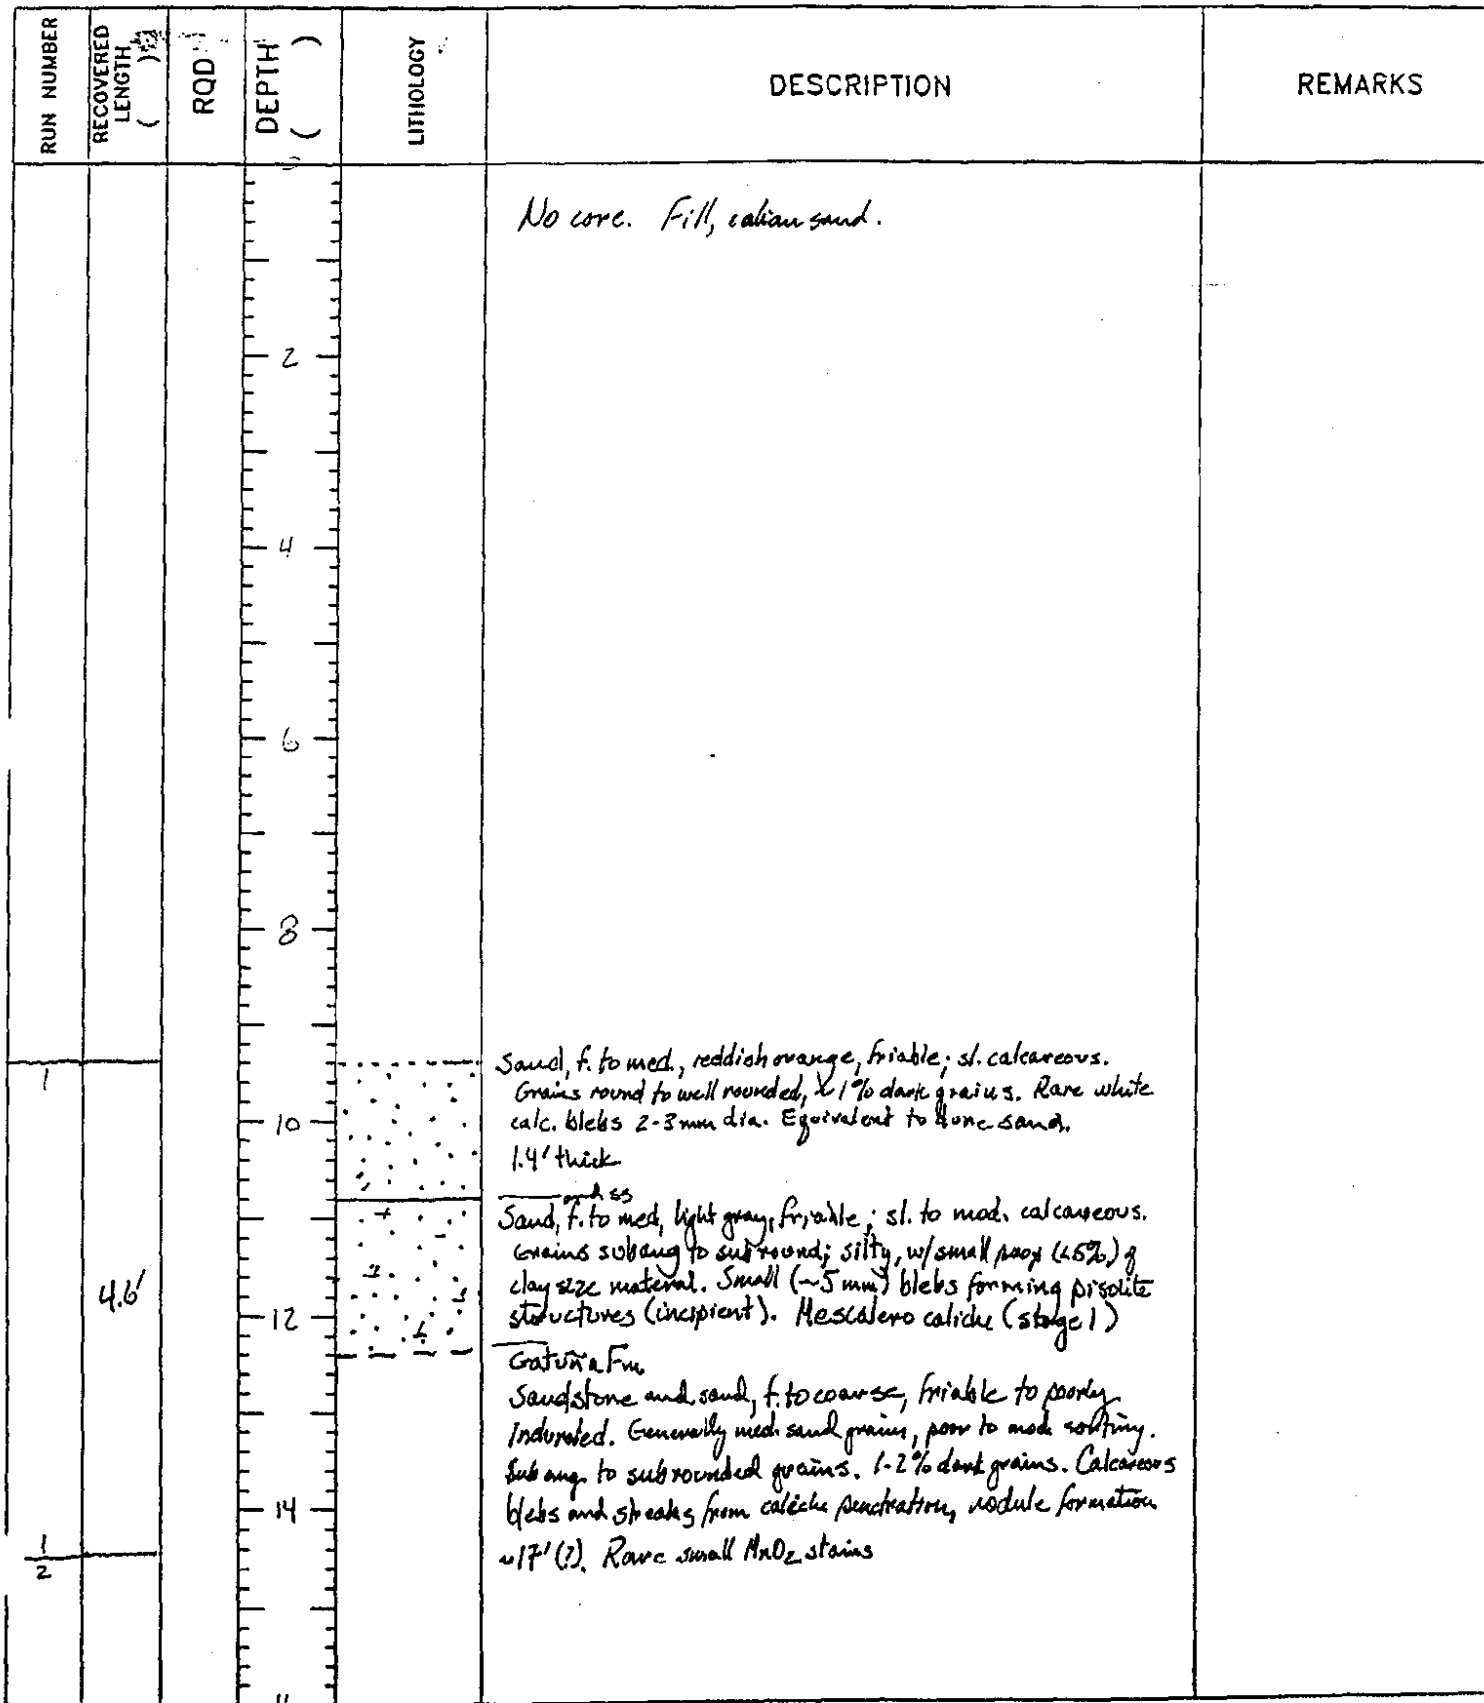 RUN NUMBER
RECOVERED
LENGTH
( )
RQD
DEPTH
( )
LITHOLOGY
DESCRIPTION
REMARKS
No core. Fill, eolian sand.
2
4
6
8
Sand, f. to med., reddish orange, friable; sl. calcareous.
1
Grains round to well rounded, 1% dark grains. Rare white
10
calc. blebs 2-3mm dia. Equivalent to dune sand.
1.4' thick
and ss
Sand, f. to med, light gray, friable; sl. to mod. calcareous.
Grains subang to subround; silty, w/small (<5%) of
4.6'
clay size material. Small (~5mm) blebs forming pisolite
12
structures (incipient). Mescalero caliche (stage 1)
Gatuña Fm
Sandstone and sand, f. to coarse, friable to poorly
Indurated. Generally med. sand grains, poor to mod. sorting.
Subang. to subrounded grains. 1-2% dark grains. Calcareous
14
blebs and streaks from caliche penetration, nodule formation
1
2
~17' (?). Rare small MnO2 stains